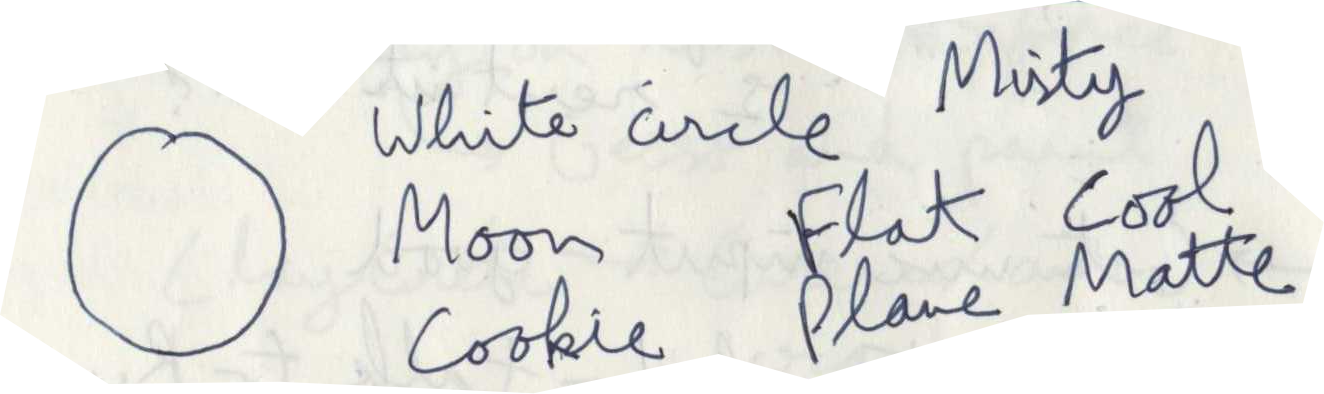 Misty
White circle
Moon Flat Cool
Cookie Plane Matte